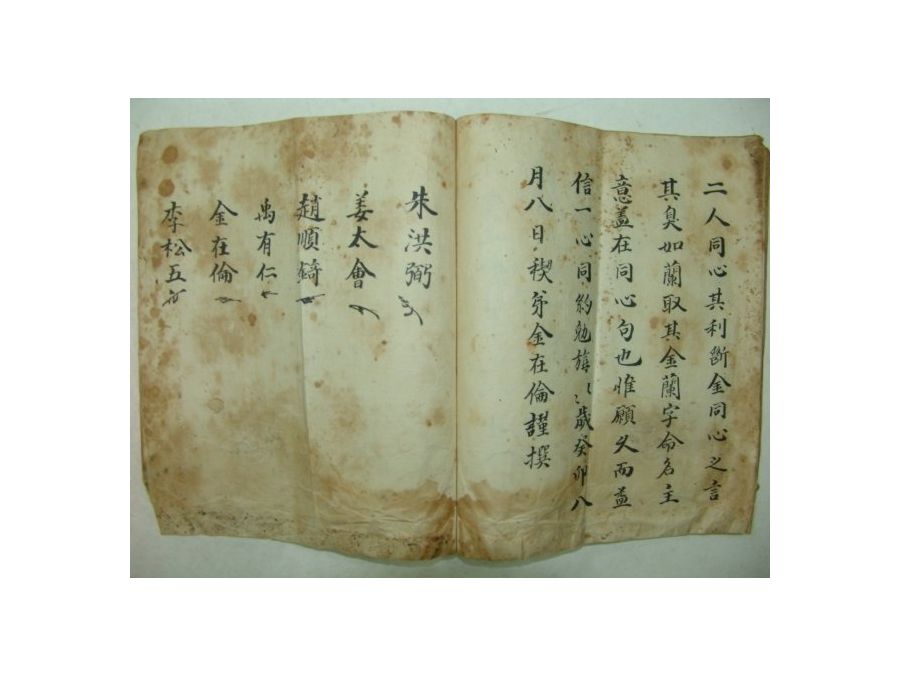 二人同心其利斷金同心之言
其臭如蘭取其金蘭字命名主
意盖在同心句也惟願久而益
信一心同約勉旃〻歲癸卯八
月八日稧弟金在倫謹撰
朱洪弼
姜太會
趙順錡
禹有仁
金在倫
李松五